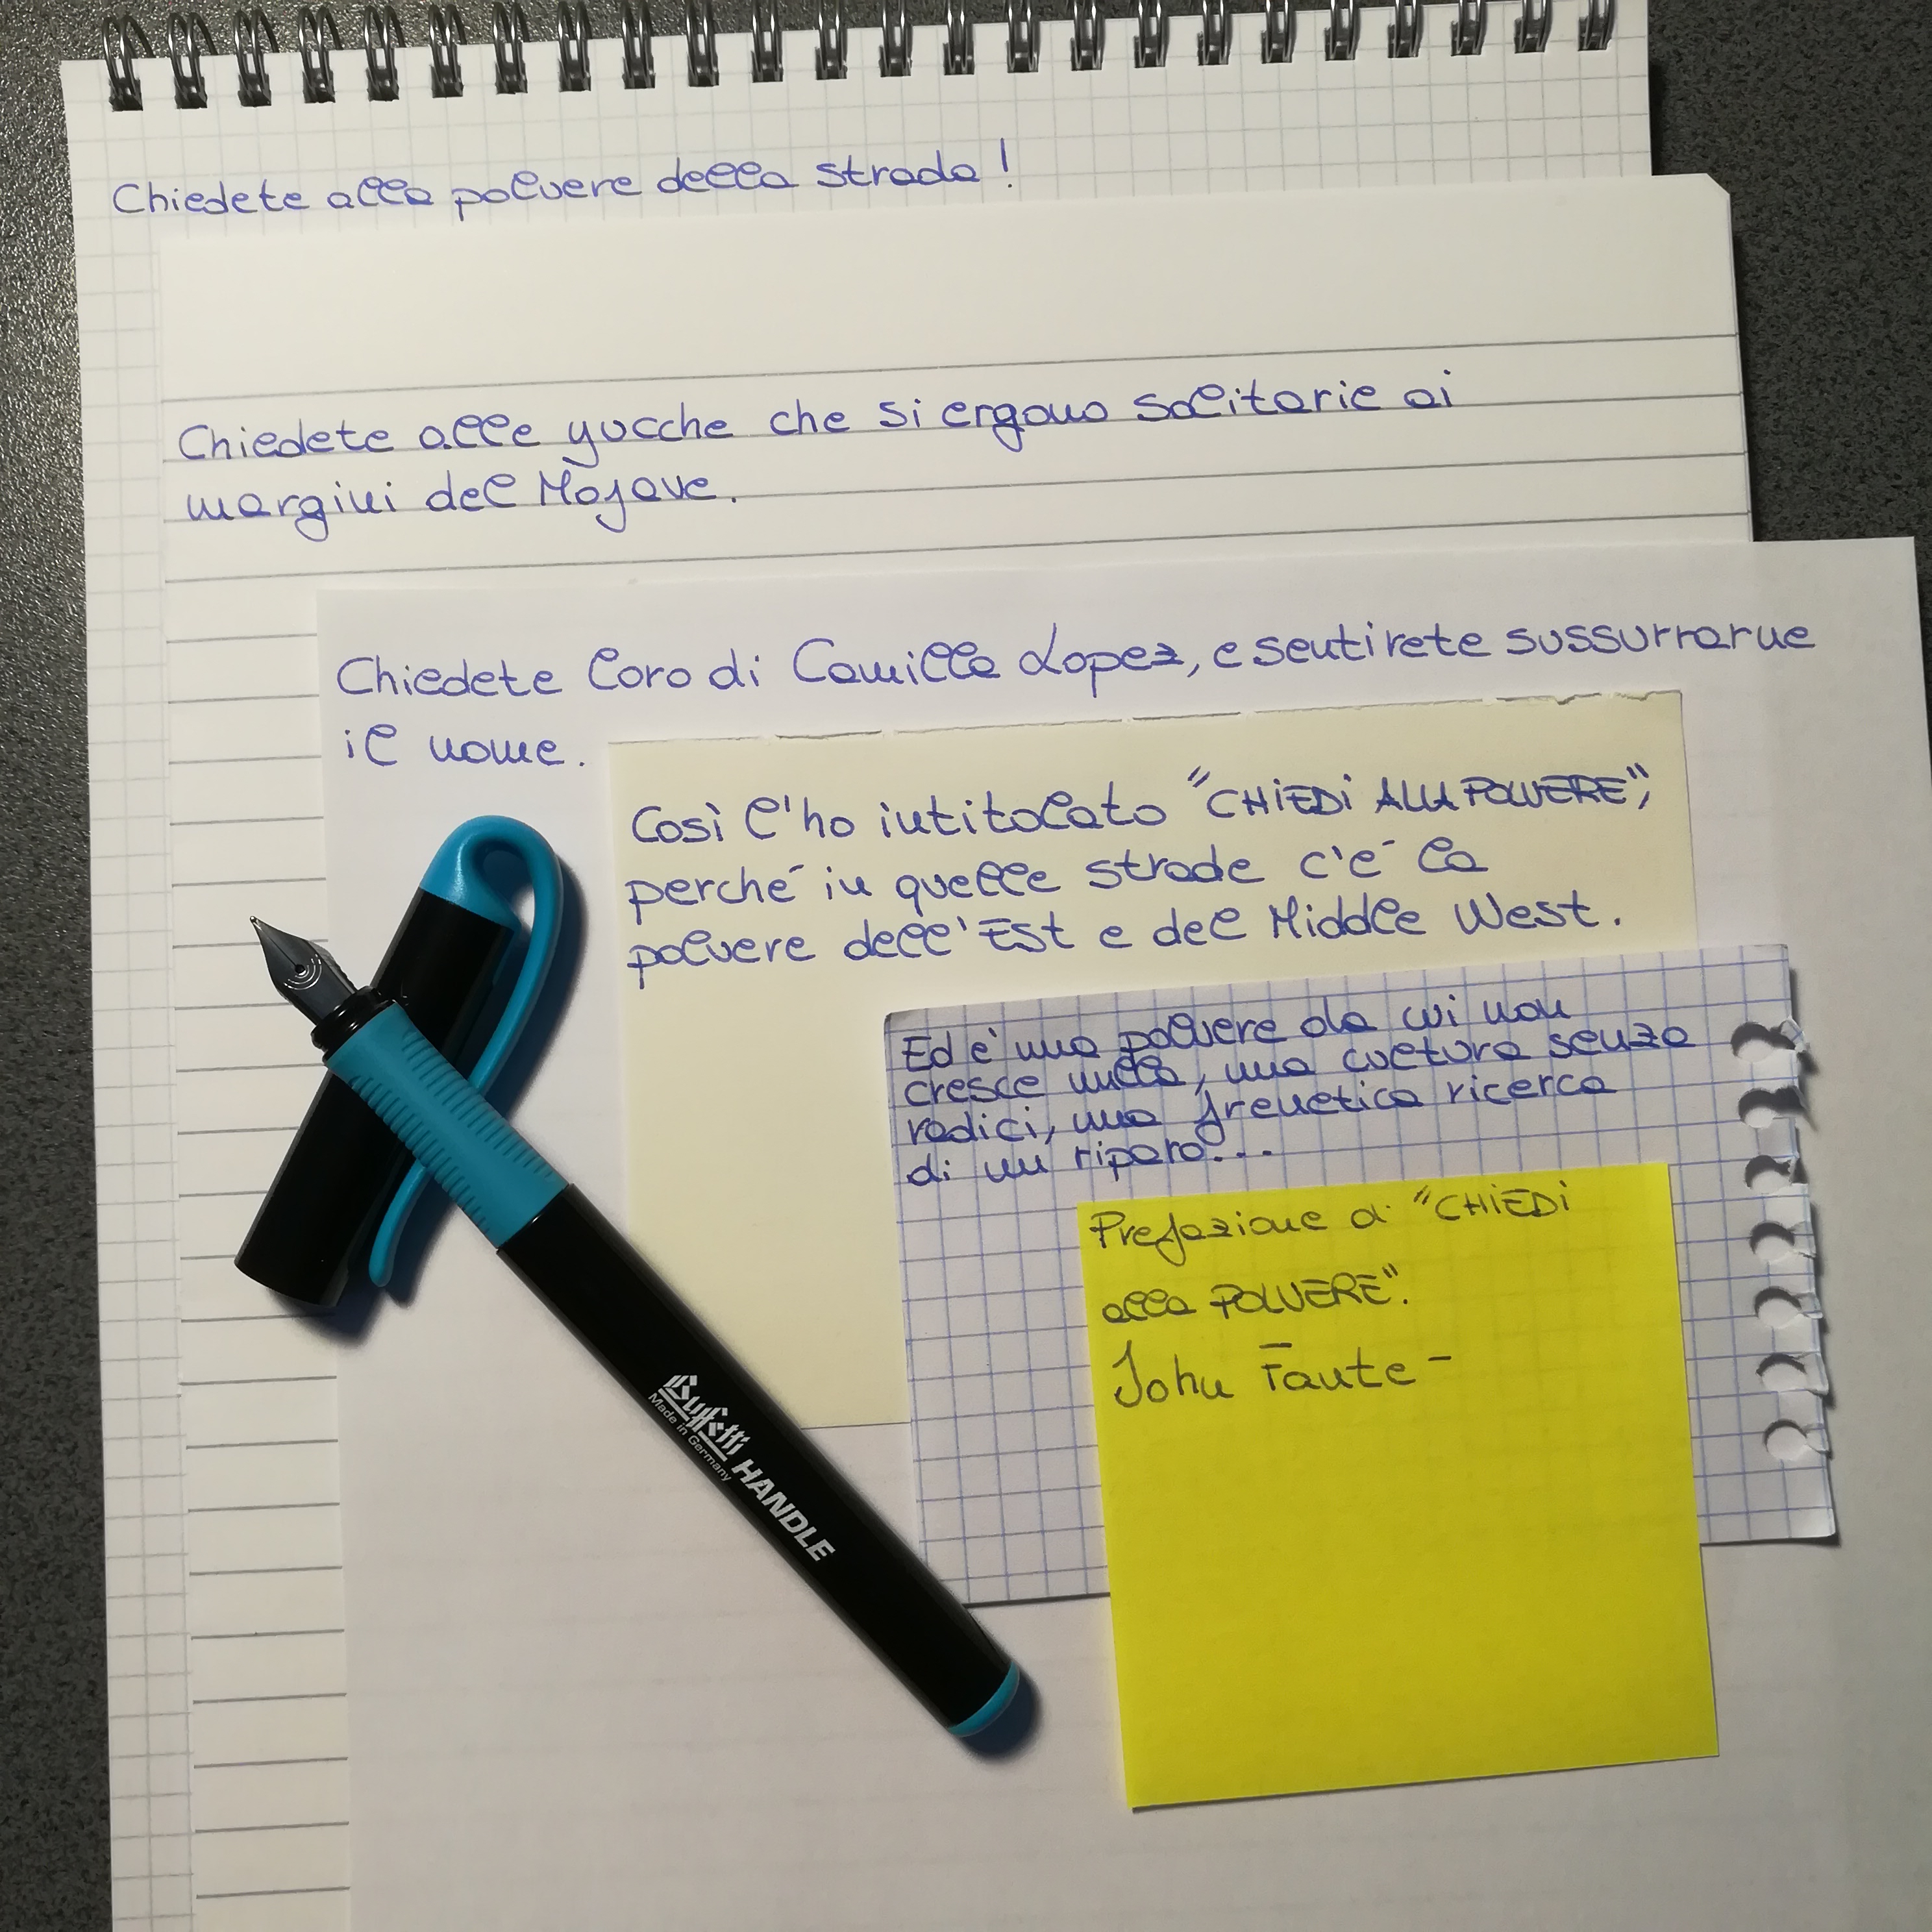 Chiedete alla polvere della strada!
Chiedete alle yucche che si ergono solitarie ai
margini del Mojave.
Chiedete loro di Camilla Lopez, e sentirete sussurrarne
il nome.
Così l'ho intitolato "CHIEDI ALLA POLVERE",
perché in quelle strade c'è la
polvere dell'Est e del Middle West.
Ed è una polvere da cui non
cresce nulla, una cultura senza
radici, una frenetica ricerca
di un riparo...
Prefazione a "CHIEDI
alla POLVERE".
John Fante -
Buffetti HANDLE
Made in Germany